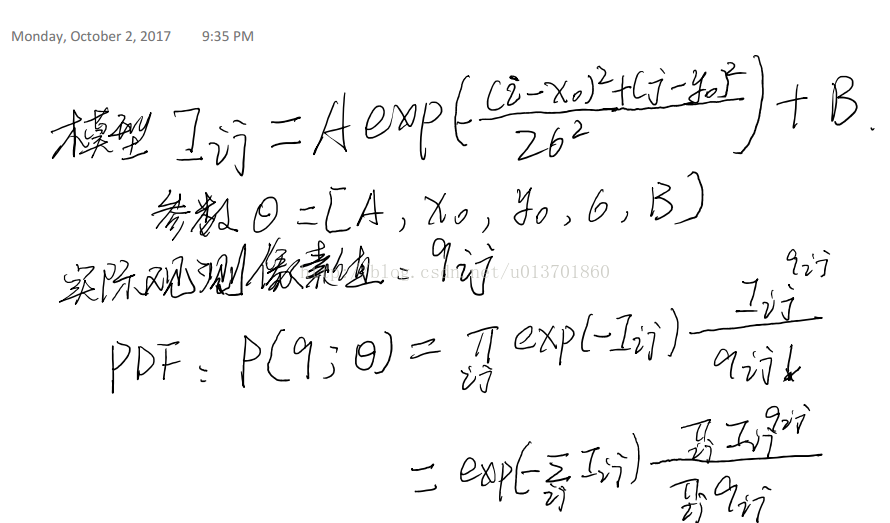 Monday, October 2, 2017 9:35 PM
模型 I_{ij} = A exp(-\frac{(i-x_0)^2+(j-y_0)^2}{2σ^2}) + B.
参数 θ = [A, x_0, y_0, σ, B]
实际观测像素值: q_{ij}
http://blog.csdn.net/u013701860
PDF: P(q; θ) = \prod_{ij} exp(-I_{ij}) \frac{I_{ij}^{q_{ij}}}{q_{ij}!}
= exp(-\sum_{ij} I_{ij}) \frac{\prod_{ij} I_{ij}^{q_{ij}}}{\prod_{ij} q_{ij}}